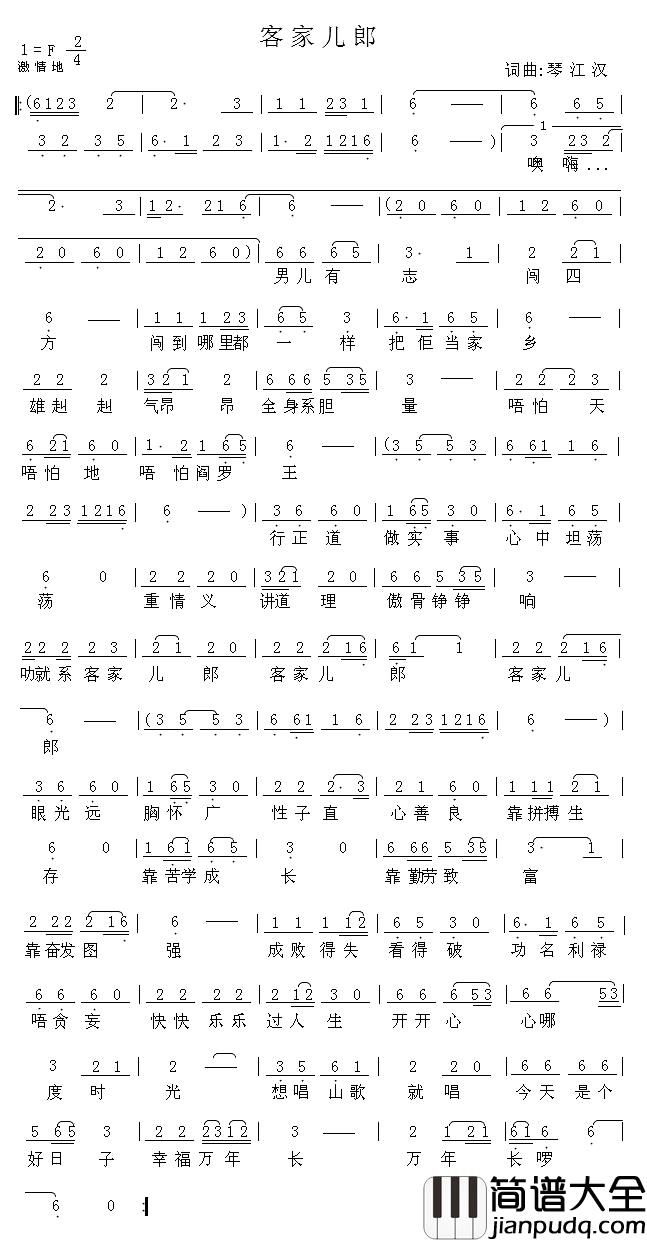 客家儿郎
1=F 2/4
激情地
词曲:琴江汉
:(6123 2 — 2· 3 | 1 1 23 1 | 6 — | 6 6 5 |
3 2 3 5 | 6· 1 2 3 | 1· 2 1216 | 6 — ) | 3 23 2 |
1
噢 嗨...
2· 3 | 12· 216 | 6 — | (20 60 | 12 60 |
20 60 | 12 60) | 66 65 | 3· 1 | 2 21 |
男儿有 志 闯四
6 — | 11 123 | 65 3 | 6·1 65 | 6 — |
方 闯到哪里都 一 样 把佢当家 乡
22 2 | 321 2 | 666 535 | 2 — | 22 23 |
雄赳 赳 气昂 昂 全身系胆 量 唔怕 天
621 60 | 1·2 165 | 6 — | (35 53 | 661 16 |
唔怕 地 唔 怕阎罗 王
223 1216 | 6 — ) | 36 60 | 165 30 | 6·1 65 |
行正道 做实事 心中坦荡
6 0 | 22 20 | 321 20 | 66 535 | 3 — |
荡 重情义 讲道 理 傲骨铮铮 响
222 23 | 21 20 | 22 216 | 61 1 | 22 216 |
叻就系客家 儿 郎 客家儿 郎 客家儿
6 — | (35 53 | 661 16 | 223 1216 | 6 — ) |
郎
36 60 | 165 30 | 22 2·3 | 21 60 | 111 21 |
眼光远 胸怀广 性子直 心善良 靠拼搏生
6 0 | 161 65 | 3 0 | 666 535 | 3· 1 |
存 靠苦学成 长 靠勤劳致 富
222 216 | 6 — | 11 112 | 65 30 | 6·1 65 |
靠奋发图 强 成败得失 看得破 功名利禄
66 60 | 22 22 | 212 30 | 66 653 | 66 53 |
唔贪妄 快快乐乐 过人生 开开心 心哪
3 21 | 2 — | 35 61 | 2 20 | 22 23 |
度时 光 想唱山歌 就唱 今天是个
565 3 | 22 2312 | 3 — | 2 121 | 616 6 |
好日 子 幸福万年 长 万年 长啰
6 0 :|
简谱大全
jianpudq.com